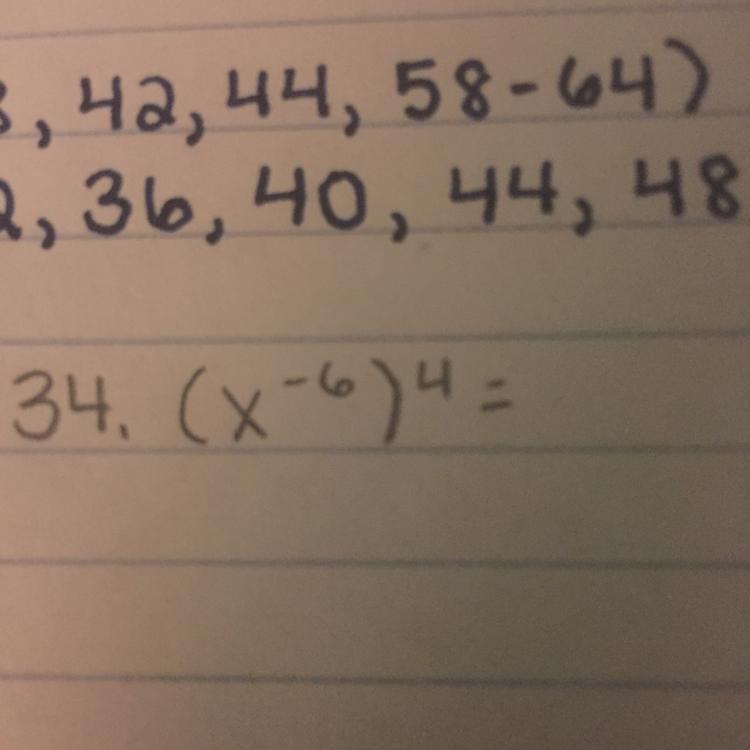 , 42, 44, 58-64)
, 36, 40, 44, 48
34. (x⁻⁶)⁴ =